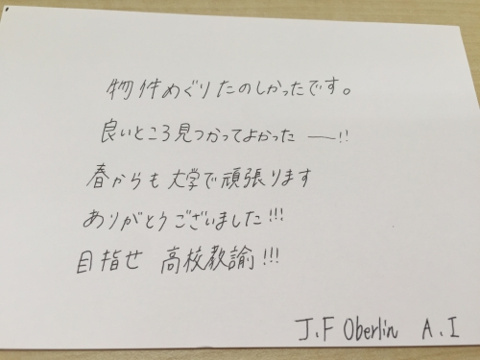 物件めぐりたのしかったです。
良いところ見つかってよかった ──!!
春からも大学で頑張ります
ありがとうございました!!!
目指せ 高校教諭!!!
J.F Oberlin A.I